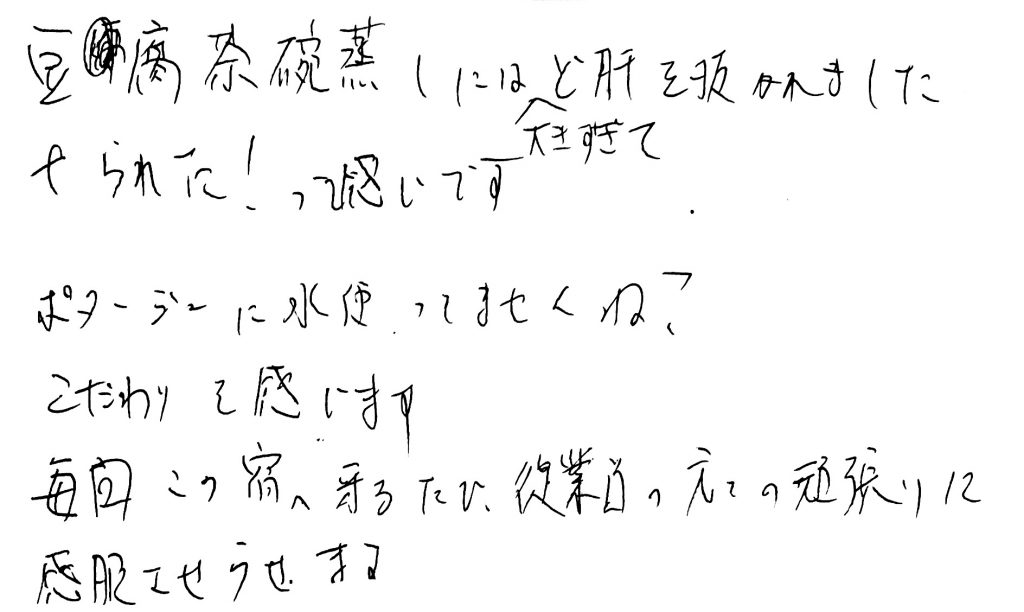 豆腐茶碗蒸しにはど肝を抜かれました
大きすぎて
せられた!って感じです
ポタージュに水使ってませんね?
こだわりを感じます
毎回この宿へ来るたび、従業員の の頑張りに
感服させ